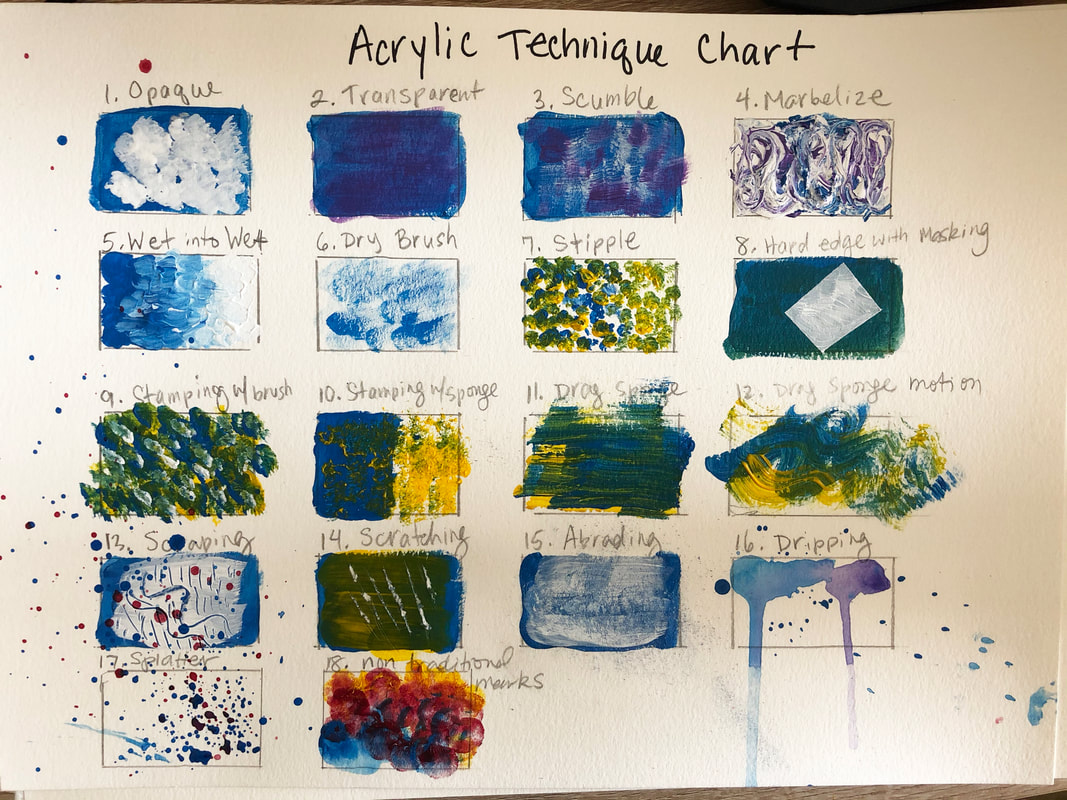 Acrylic Technique Chart
1. Opaque
2. Transparent
3. Scumble
4. Marbelize
5. Wet into Wet
6. Dry Brush
7. Stipple
8. Hard edge with Masking
9. Stamping w/ brush
10. Stamping w/ sponge
11. Drag Sponge
12. Drag Sponge motion
13. Scraping
14. Scratching
15. Abrading
16. Dripping
17. Splatter
18. non traditional
marks